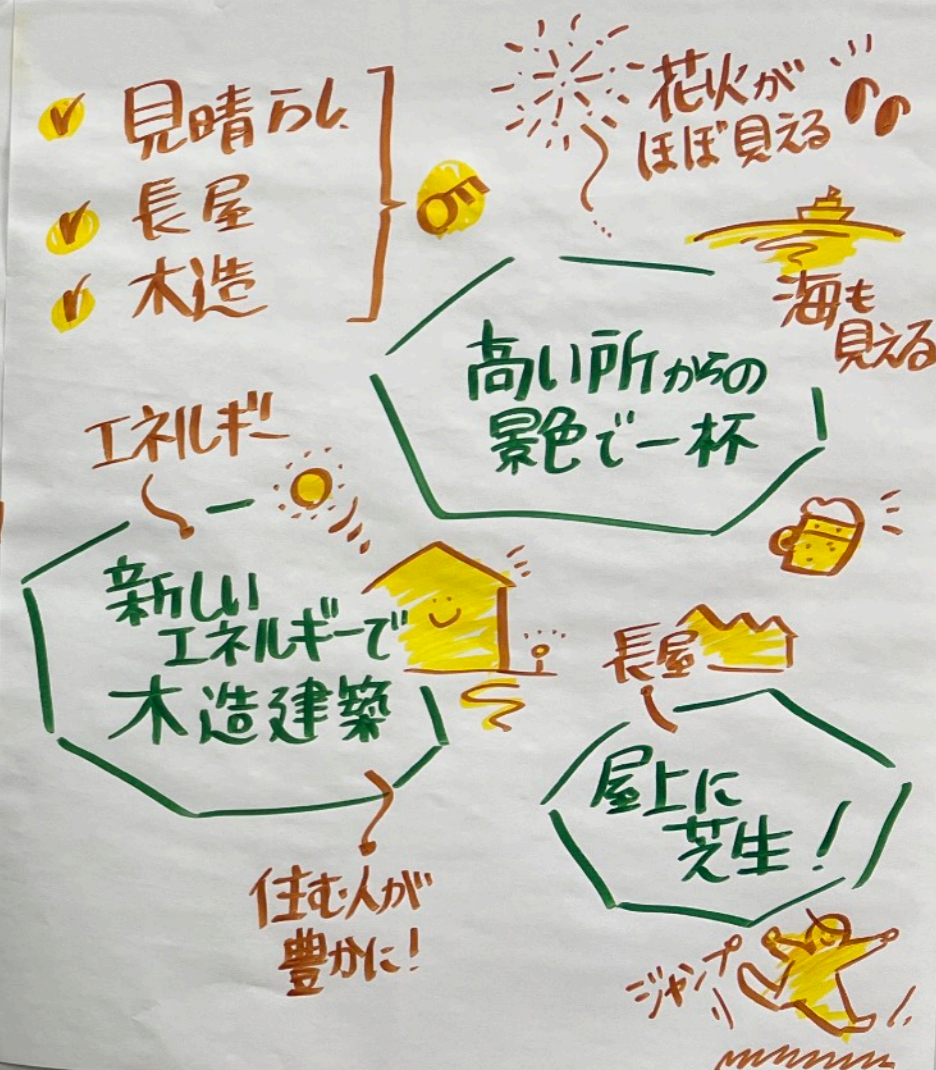 見晴らし
長屋
木造
花火が
ほぼ見える
海も
見える
高い所からの
景色で一杯
エネルギー
新しい
エネルギーで
木造建築
住む人が
豊かに!
長屋
屋上に
芝生!
ジャンプ